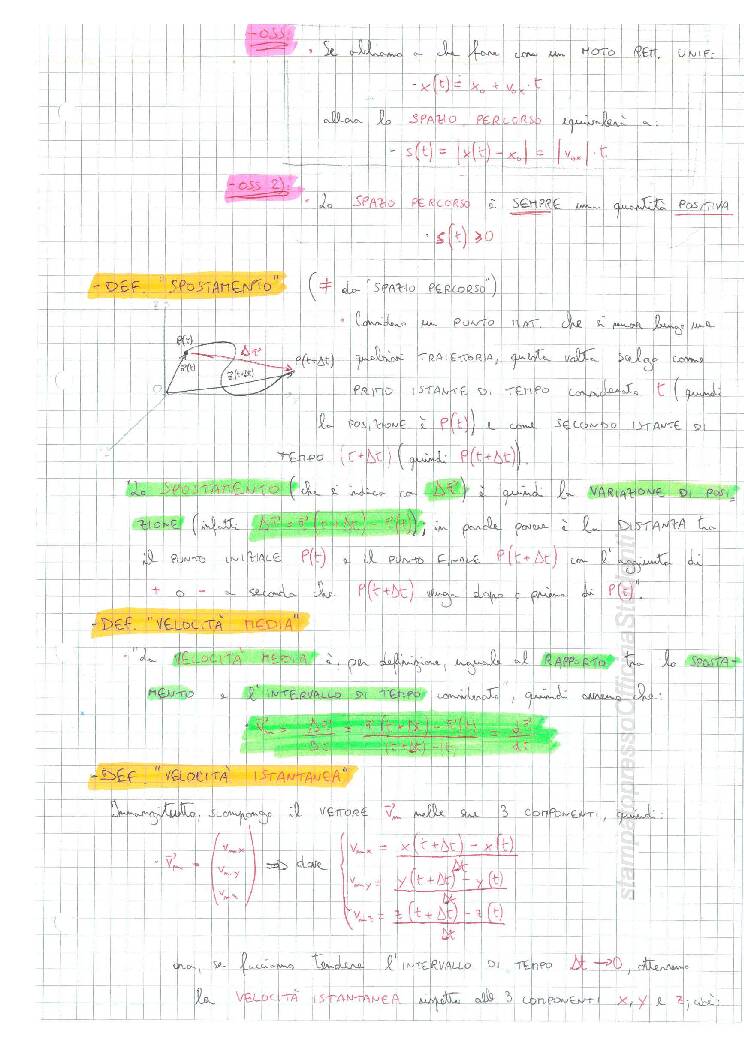 -OSS:
• Se abbiamo a che fare con un MOTO RETT. UNIF:
- x(t) = x₀ + v₀ₓ · t
allora lo SPAZIO PERCORSO equivalerà a:
- s(t) = |x(t) - x₀| = |v₀ₓ| · t
-OSS 2):
• Lo SPAZIO PERCORSO è SEMPRE una quantità POSITIVA
• s(t) ≥ 0
-DEF. "SPOSTAMENTO" (≠ da "SPAZIO PERCORSO")
• Considero un PUNTO MAT. che si muove lungo una
qualsiasi TRAIETTORIA, questa volta scelgo come
PRIMO ISTANTE DI TEMPO considerato t (quindi
la POSIZIONE è P(t)) e come SECONDO ISTANTE DI
TEMPO (t+Δt) (quindi P(t+Δt)).
z
P(t)
Δr⃗
r⃗(t)
P(t+Δt)
r⃗(t+Δt)
O
"Lo SPOSTAMENTO (che si indica con Δr⃗) è quindi la VARIAZIONE DI POSI-
ZIONE (infatti Δr⃗ = r⃗(t+Δt) - r⃗(t)), in parole povere è la DISTANZA tra
il PUNTO INIZIALE P(t) e il PUNTO FINALE P(t+Δt) con l'aggiunta di
+ o - a seconda che P(t+Δt) venga dopo o prima di P(t)".
-DEF. "VELOCITÀ MEDIA"
- "La VELOCITÀ MEDIA è, per definizione, uguale al RAPPORTO tra lo SPOSTA-
MENTO e l'INTERVALLO DI TEMPO considerato", quindi avremo che:
v⃗ₘ = Δr⃗/Δt = (r⃗(t+Δt) - r⃗(t))/((t+Δt) - t) = Δr⃗/Δt
-DEF. "VELOCITÀ ISTANTANEA"
Innanzitutto, scompongo il VETTORE v⃗ₘ nelle sue 3 COMPONENTI, quindi:
- v⃗ₘ = (vₘₓ, vₘy, vₘz) ⇒ dove { vₘₓ = (x(t+Δt) - x(t))/Δt
vₘy = (y(t+Δt) - y(t))/Δt
vₘz = (z(t+Δt) - z(t))/Δt
ora, se facciamo tendere l'INTERVALLO DI TEMPO Δt → 0, otterremo
la VELOCITÀ ISTANTANEA rispetto alle 3 COMPONENTI x, y e z; cioè:
stampatopressoOfficinaStudenti